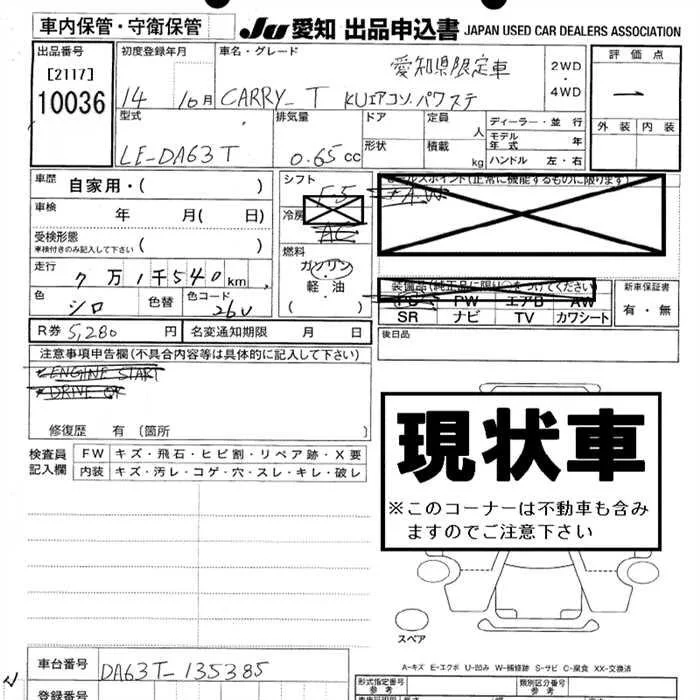 車内保管・守衛保管
JU 愛知 出品申込書 JAPAN USED CAR DEALERS ASSOCIATION
出品番号
[2117]
10036
初度登録年月
14 10月
車名・グレード
愛知県限定車
CARRY T KUエアコン.パワステ
2WD
・
4WD
評価点
外装 内装
型式
LE-DA63T
排気量
0.65cc
ドア
形状
定員 人
積載 kg
ディーラー・並行
モデル年式 年
ハンドル 左・右
車歴 自家用・( )
車検 年 月( 日)
受検形態
※車検付きのみ記入して下さい ( )
走行 7万1千540km
色 シロ 色替 色コード 26U
R券 5,280 円 名変通知期限 月 日
シフト
F5
冷房
AC
燃料
ガソリン
・
軽油
( )
セールスポイント(正常に機能するものに限ります)
装備品(純正品に限り○をつけてください)
PS PW エアB AW
SR ナビ TV カワシート
新車保証書
有・無
後日品
注意事項申告欄(不具合内容等は具体的に記入して下さい)
ENGINE START
修復歴 有(箇所 )
検査員記入欄
FW キズ・飛石・ヒビ割・リペア跡・X要
内装 キズ・汚レ・コゲ・穴・スレ・キレ・破レ
現状車
※このコーナーは不動車も含み
ますのでご注意下さい
スペア
A-キズ E-エクボ U-凹み W-補修跡 S-サビ C-腐食 XX-交換済
車台番号 DA63T-135385
登録番号
形式指定番号
参考
類別区分番号
参考